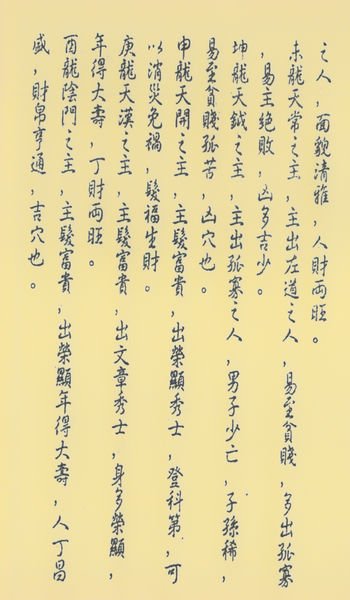 之人，面貌清雅，人財両旺。
未龍天常之主，主出左道之人，易至貧賤，多出孤寡
，易主絶敗，凶多吉少。
坤龍天鉞之主，主出孤寡之人，男子少亡，子孫稀，
易至貧賤孤苦，凶穴也。
申龍天開之主，主髮富貴，出榮顯秀士，登科第，可
以消災免禍，髮福生財。
庚龍天漢之主，主髮富貴，出文章秀士，身多榮顯，
年得大壽，丁財両旺。
酉龍陰門之主，主髮富貴，出榮顯年得大壽，人丁昌
盛，財帛亨通，吉穴也。